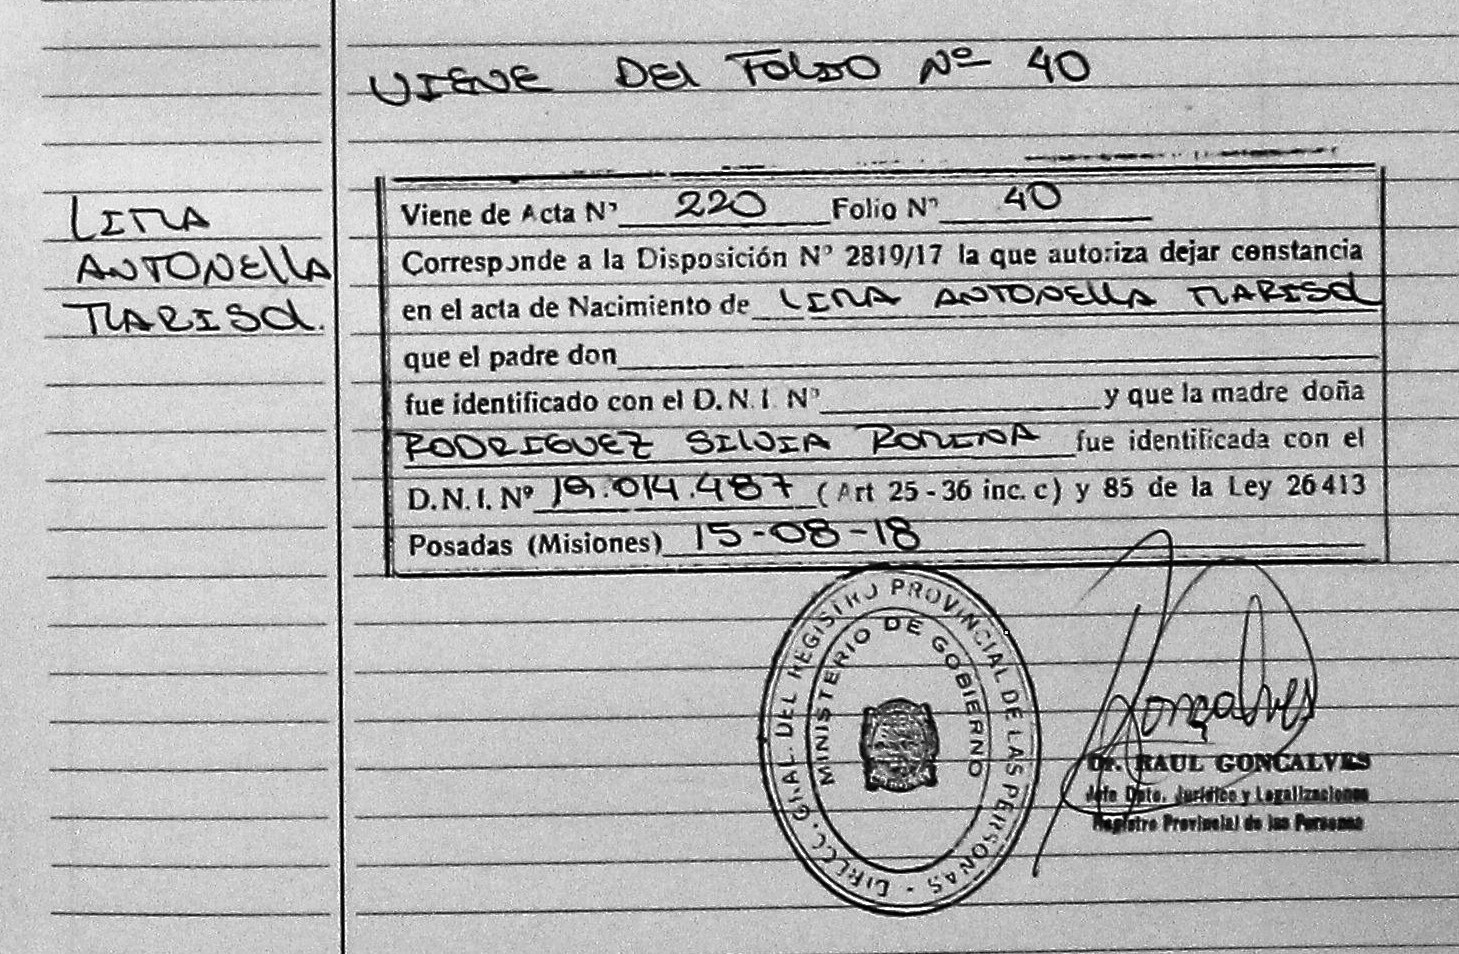 VIENE DEL FOLIO Nº 40
LIMA
ANTONELLA
MARISOL.
Viene de Acta Nº 220 Folio Nº 40
Corresponde a la Disposición Nº 2819/17 la que autoriza dejar constancia
en el acta de Nacimiento de LIMA ANTONELLA MARISOL
que el padre don
fue identificado con el D.N.I. Nº y que la madre doña
RODRIGUEZ SILVIA ROMINA fue identificada con el
D.N.I. Nº 19.014.487 (Art 25-36 inc. c) y 85 de la Ley 26413
Posadas (Misiones) 15-08-18
DIRECC. GRAL. DEL REGISTRO PROVINCIAL DE LAS PERSONAS -
MINISTERIO DE GOBIERNO
Gonçalves
Dr. RAUL GONCALVES
Jefe Dpto. Jurídico y Legalizaciones
Registro Provincial de las Personas